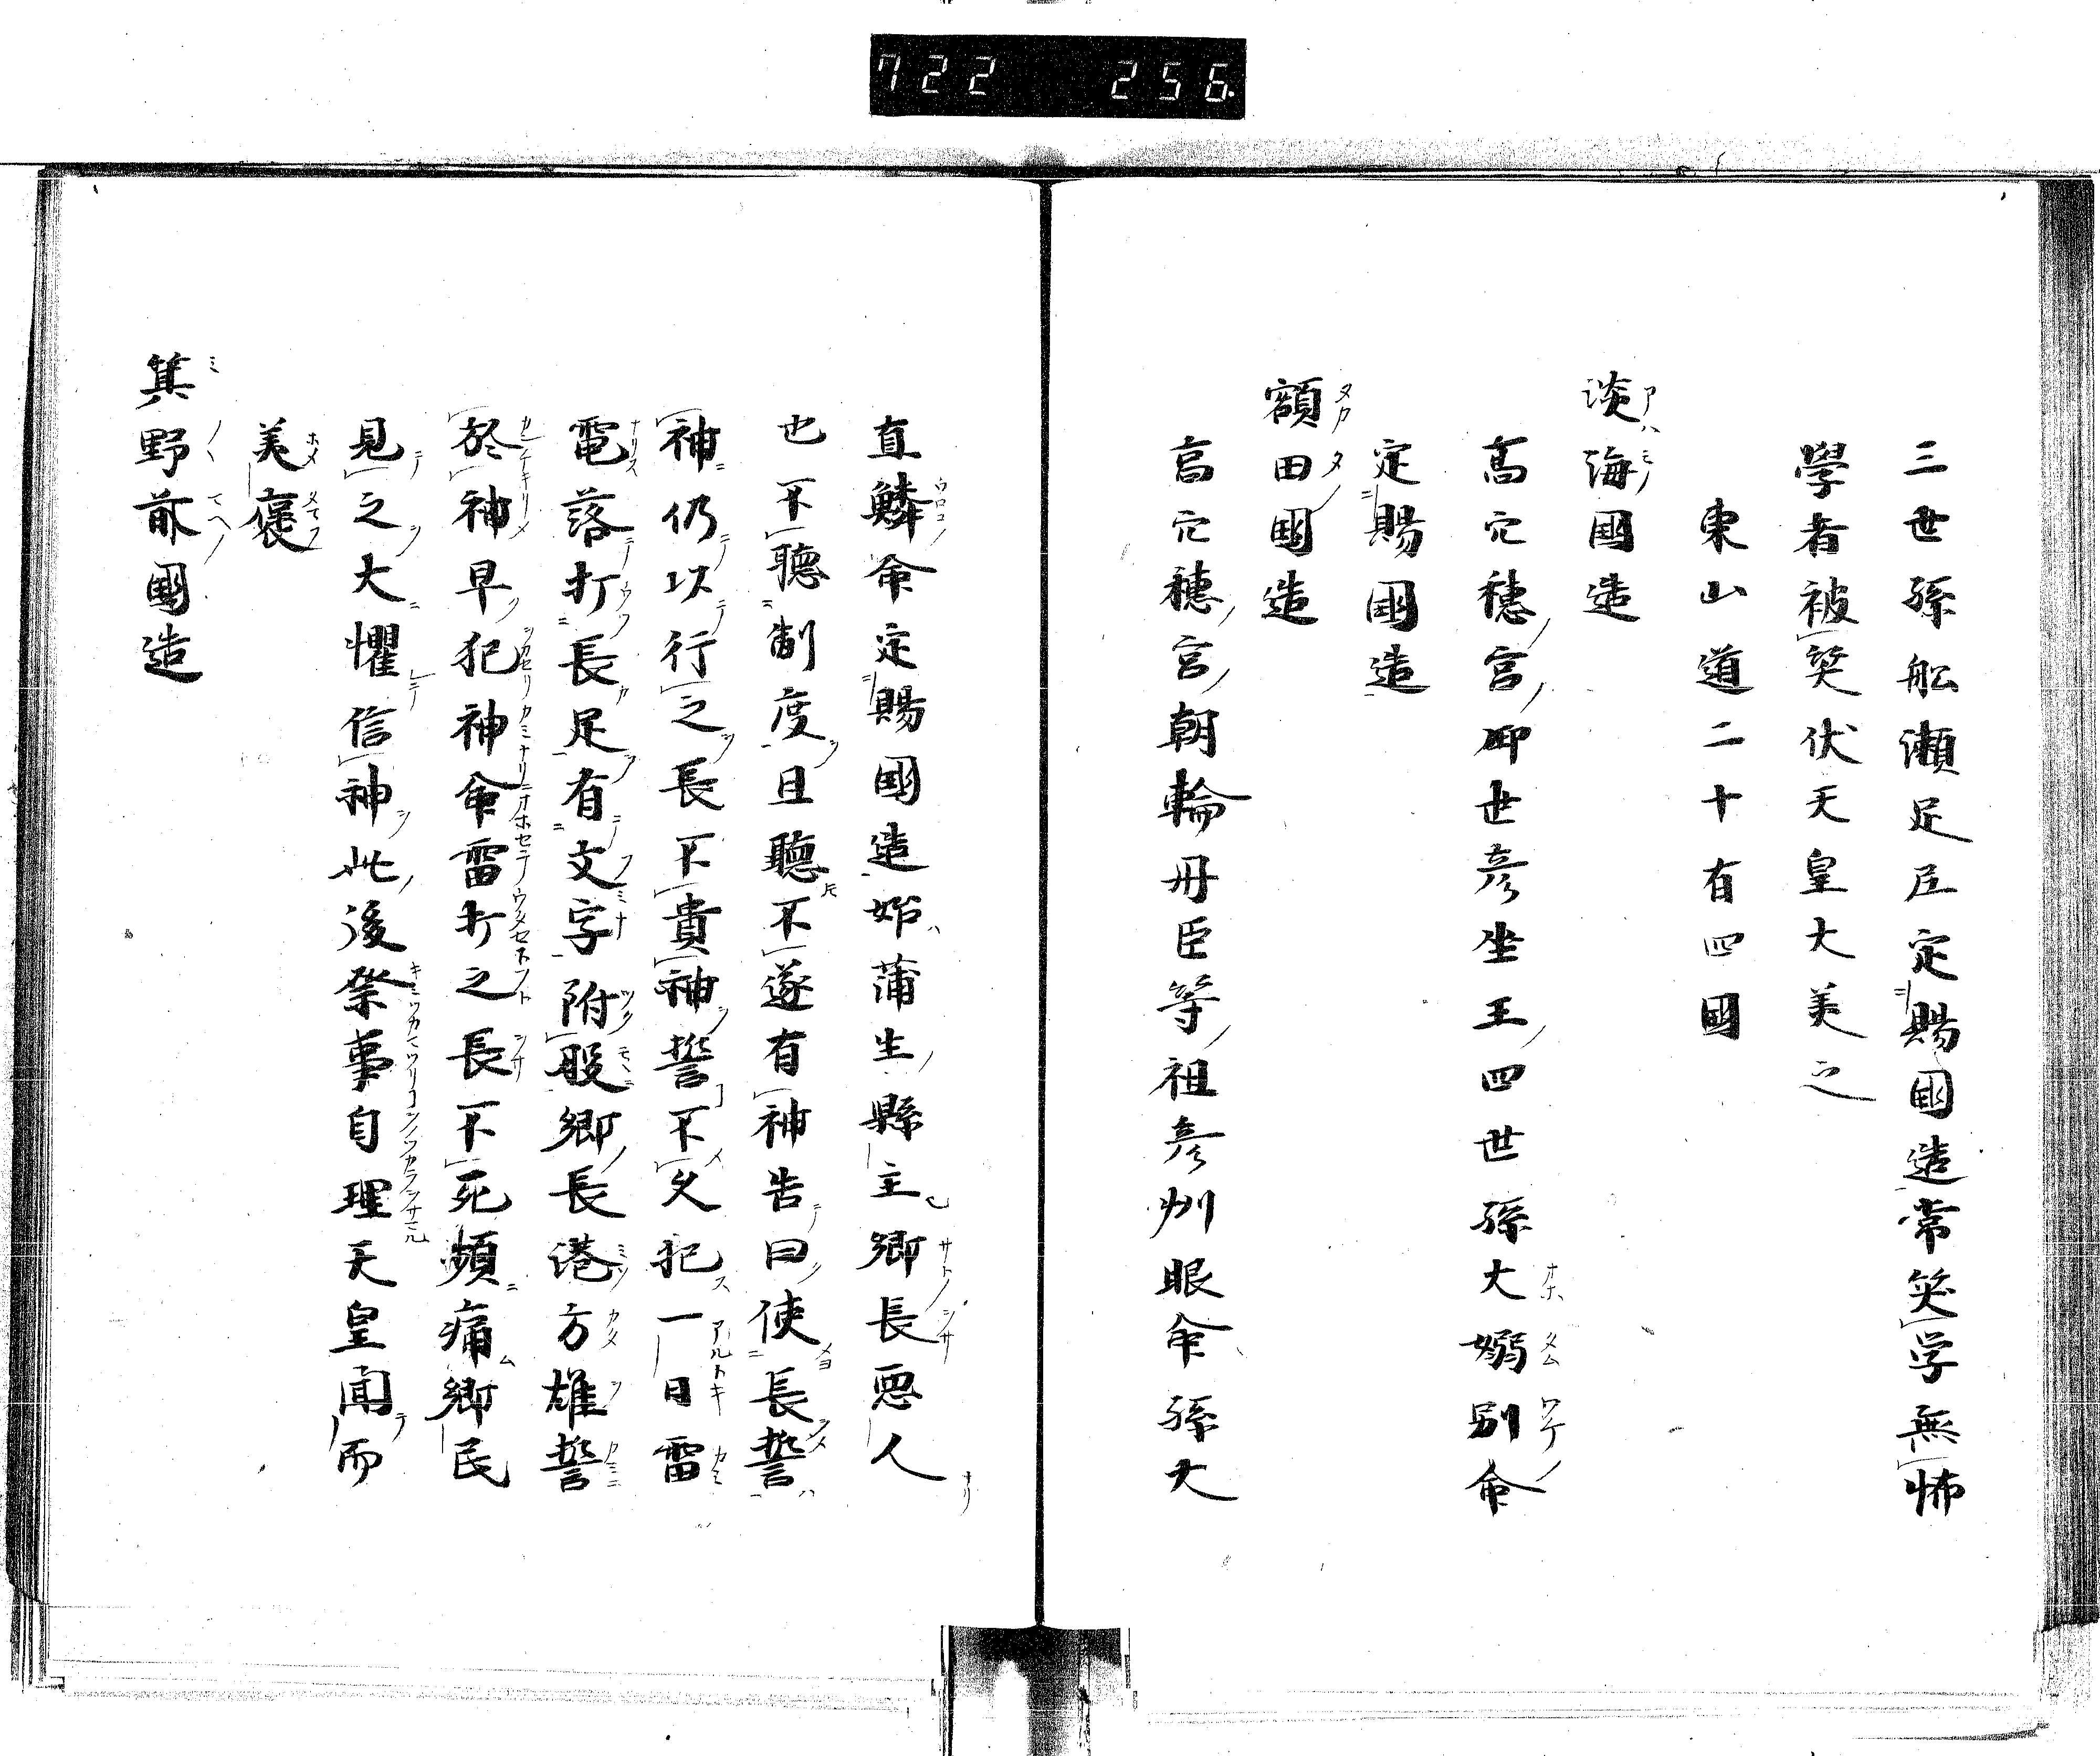 722 256
三世孫船瀬足尼定賜國造常笑学無怖
學者被笑伏天皇大美之
東山道二十有四國
淡海國造
高穴穂宮御世彦坐王四世孫大嫋別命
定賜國造
額田國造
高穴穂宮朝輪冊臣等祖彦州眼命孫大
直鱗命定賜國造始蒲生縣主郷長悪人
也不聴制度且聴不遂有神告曰使長誓
神仍以行之長不貴神誓不久犯一日雷
電落打長足有文字附股郷長港方雄誓
於神早犯神命雷打之長不死頻痛郷民
見之大懼信神此後祭事自理天皇聞而
美褒
箕野前國造